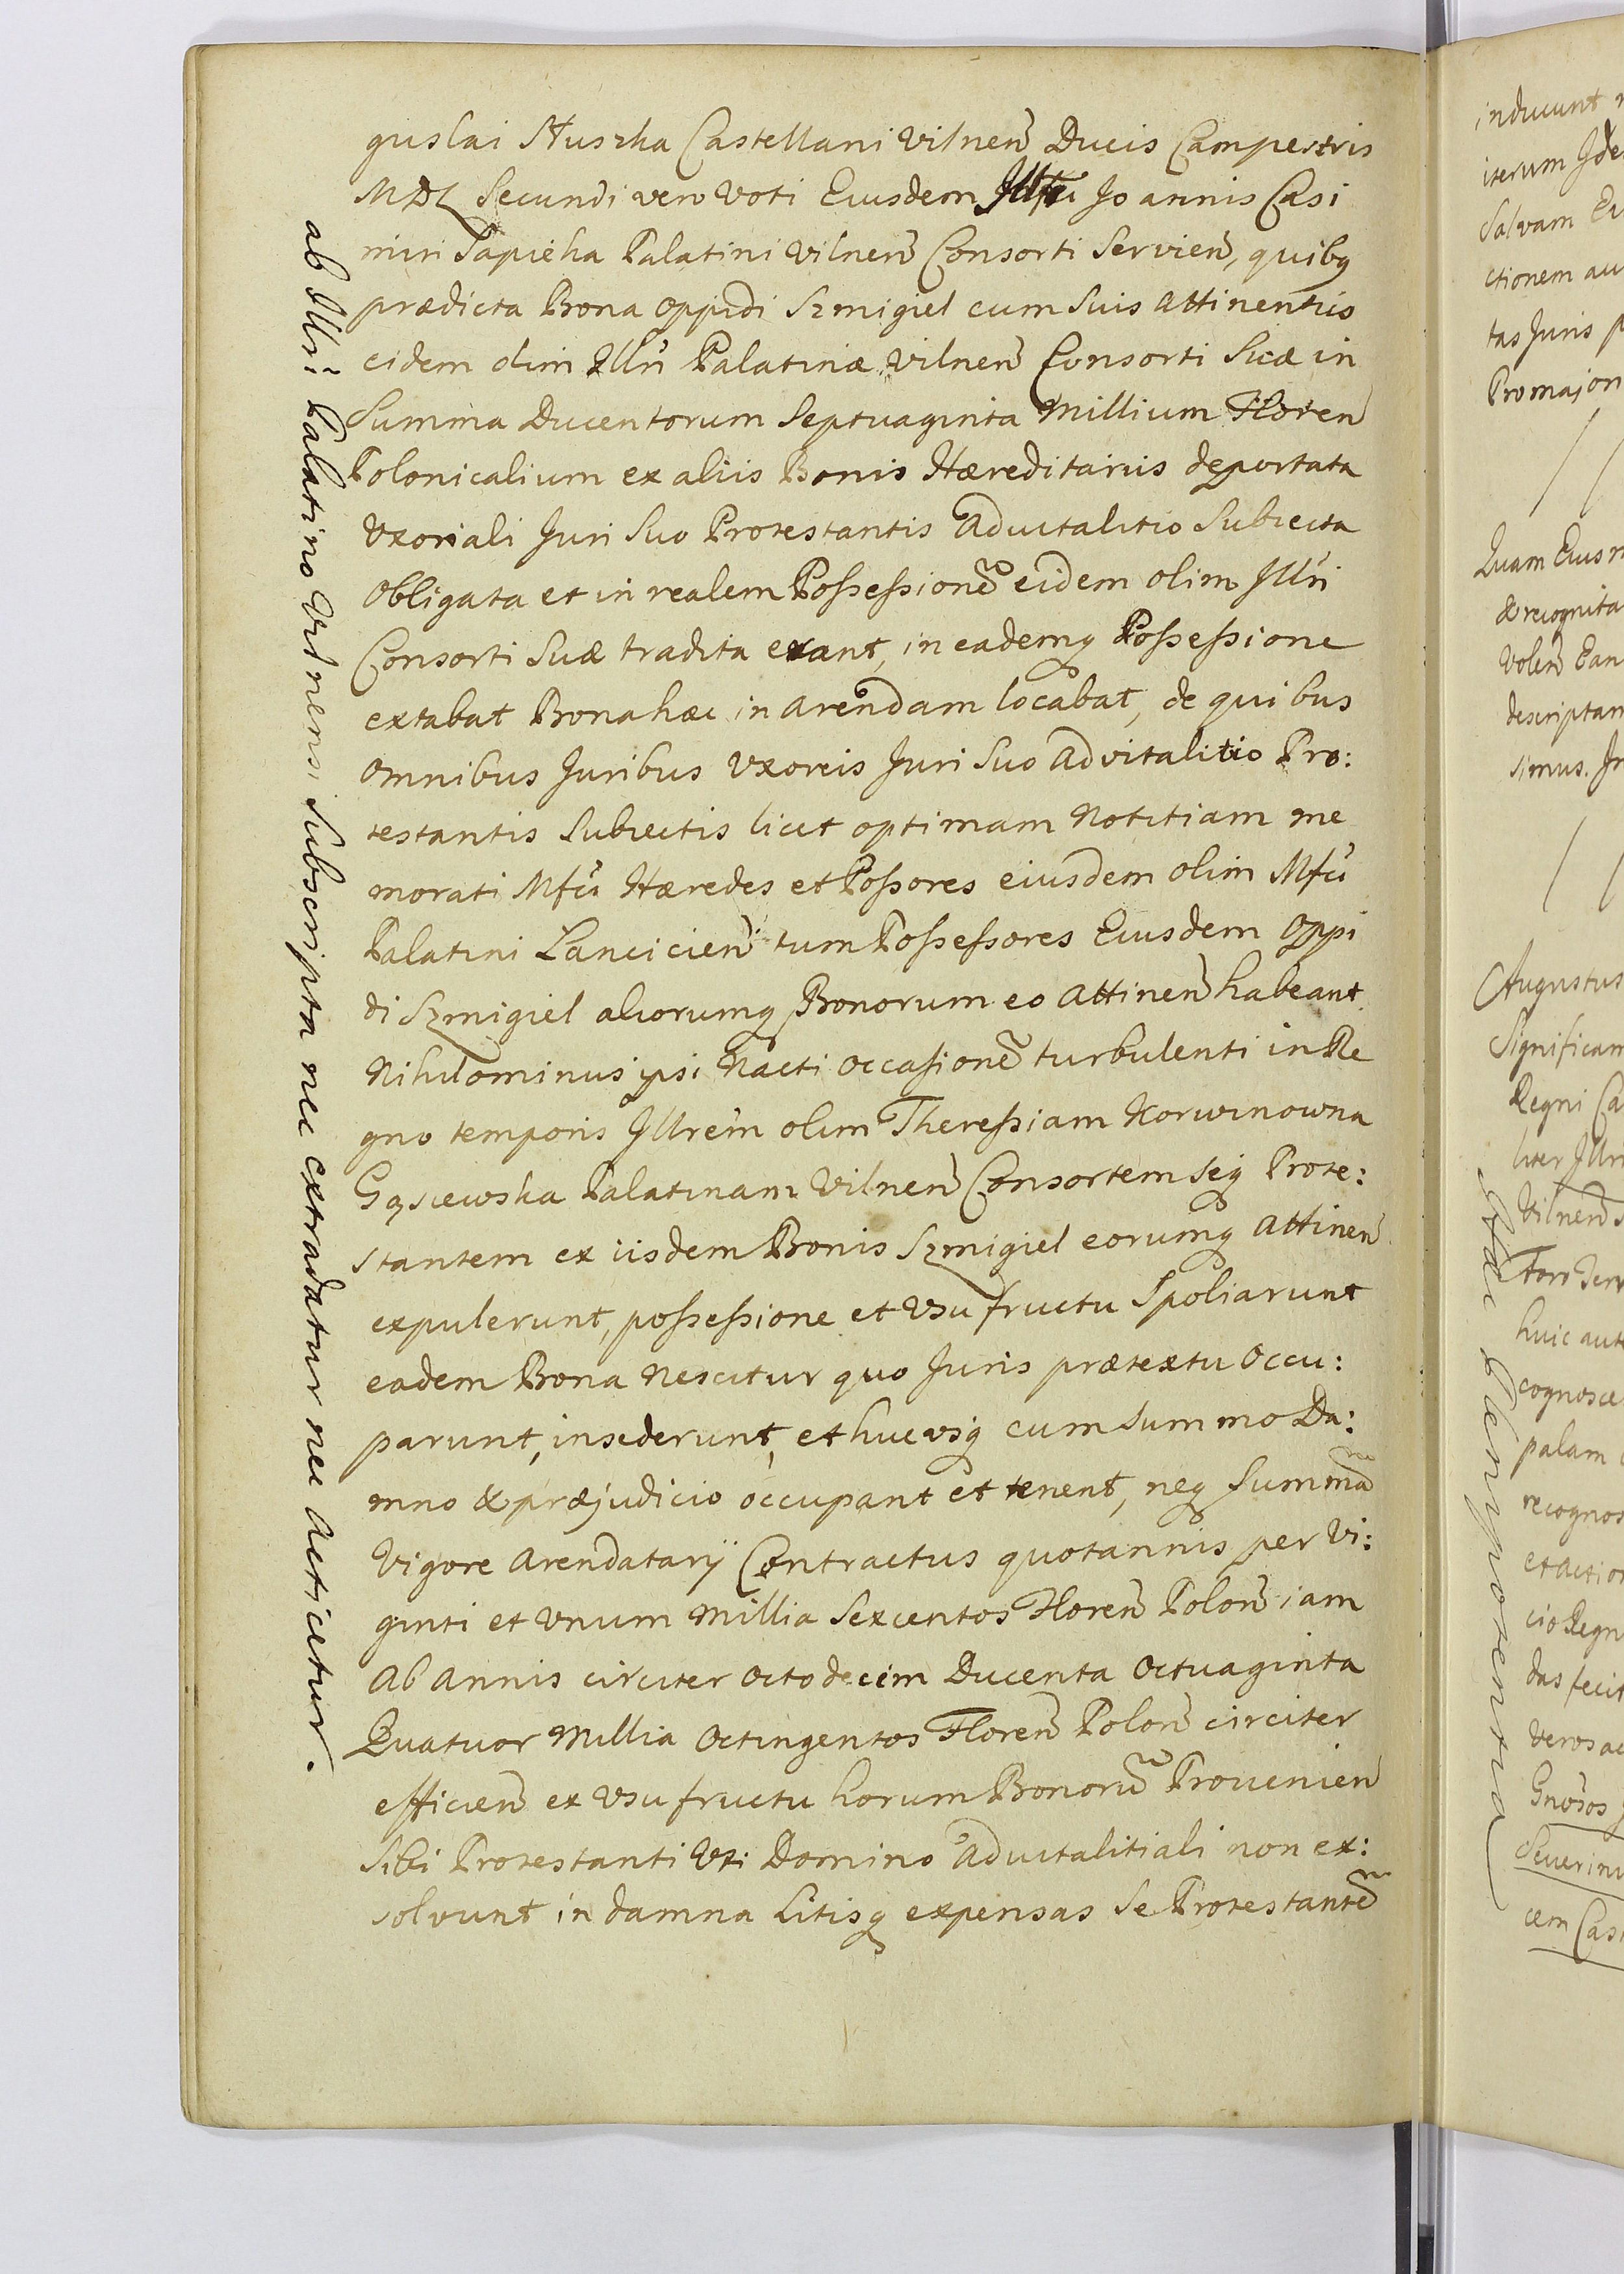 guslai Huszka Castellani Vilnen Ducis Campestris
MDL Secundi vero Voti Eiusdem Joannis Casi
miri Sapieha Palatini Vilnen Consorti Servien, quibq
prædicta Bona oppidi Szmigiel cum suis attinentiis
eidem olim Illri Palatinæ Vilnen Consorti Suæ in
Summa Ducentorum Septuaginta Millium Floren
Polonicalium ex aliis Bonis Hæreditariis deportata
Uxoriali Juri Suo Protestantis Advitalitio Subiecta
Obligata et in realem Possessionē eidem olim Illri
Consorti Suæ tradita erant, in eademq Possessione
extabat Bona hæc in arendam locabat, de quibus
Omnibus Juribus Vxoreis Juri Suo advitalitio Pro:
testantis Subiectis licet optimam Notitiam me
morati Mfci Hæredes et Possores eiusdem olim Mfci
Palatini Lancicien tum Possessores Eiusdem Oppi
di Szmigiel aliorumq Bonorum eo attinen habeant
Nihilominus ipsi Nacti Occasionē turbulenti in Re
gno temporis Illrem olim Theressiam Korwinowna
Gąsiewska Palatinam Vilnen Consortem Seq Prote:
stantem ex iisdem Bonis Szmigiel eorumq attinen
expulerunt, possessione et Vsufructu Spoliarunt
eadem Bona Nescitur quo Juris prætextu Occu:
parunt, insederunt, et hucvsq cum summo Da:
mno & præjudicio occupant et tenent, neq Summā
Vigore Arendatarij Contractus quotannis per Vi:
ginti et Vnum Millia Sexcentos Floren Polon iam
Ab Annis circiter octodecim Ducenta Octuaginta
Quatuor Millia Octingentos Floren Polon circiter
efficien ex Vsufructu horum Bonorū Provenien
Sibi Protestanti Vti Domino advitalitiali non ex:
solvunt in damna Litisq expensas Se Protestantē
ab Illri Palatino Vilnensi Subscripta nec extradatur nec acticetur.
inducunt
iterum
Salvam
ctionem
tas Juris
Pro
Quam
& recognita
Volen
simus.
Augustus
Regni
liter
Vilnen
Foro
huic
cognosce
palam
recognos
et
cio Regn
das fecit
Veros
cem
Plenipotentia